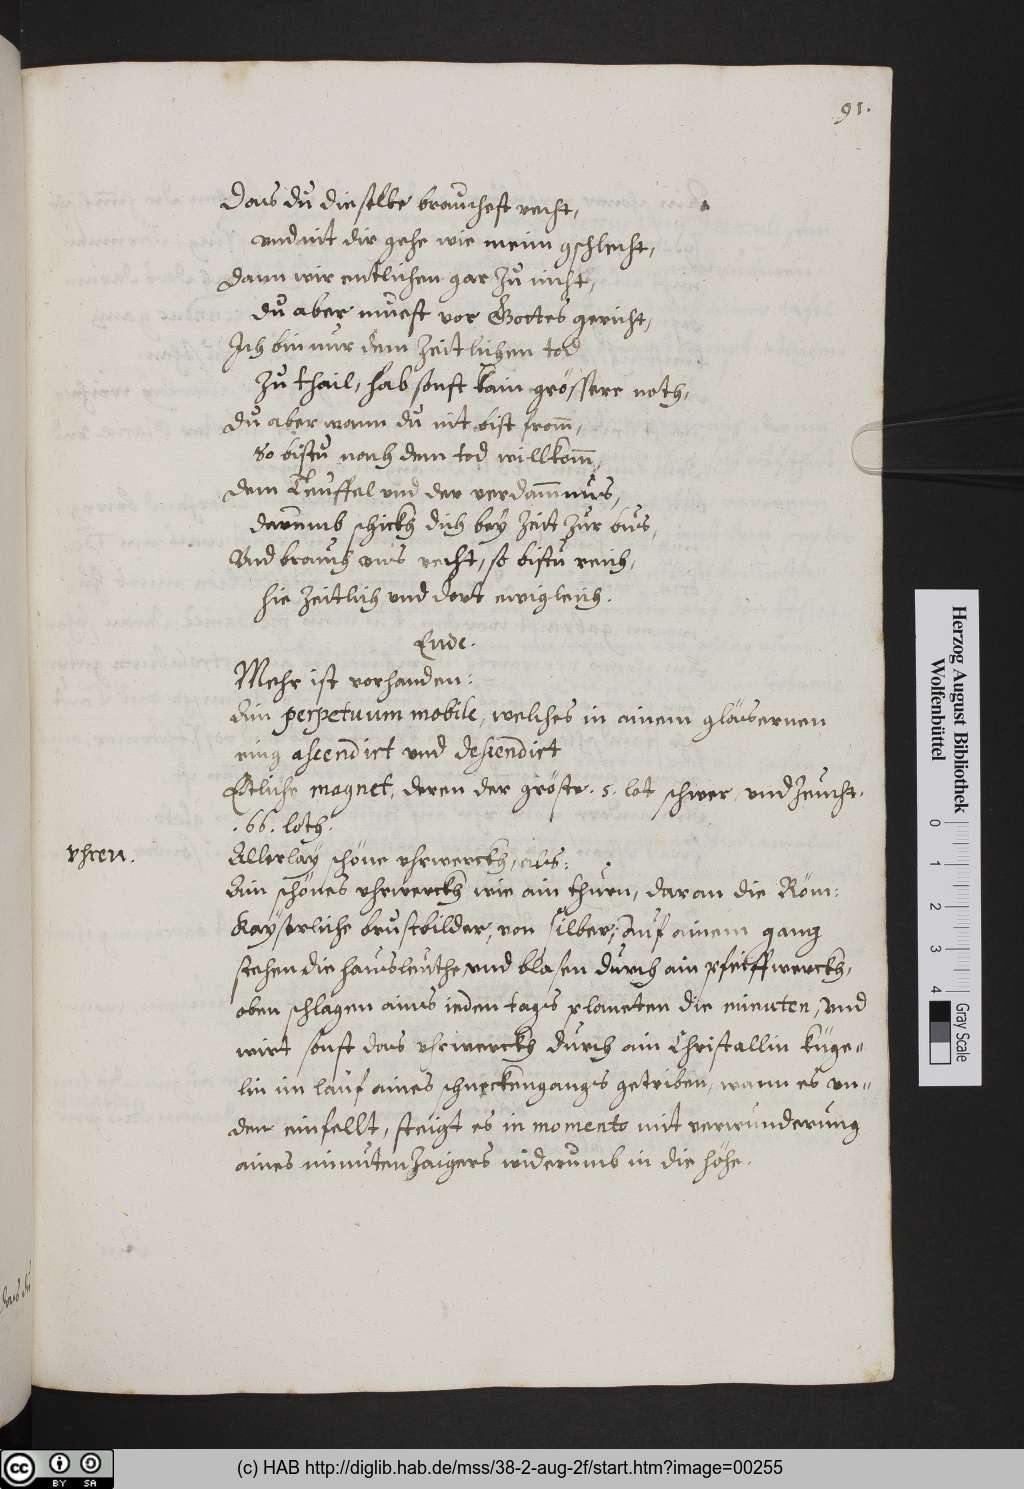 91.
Das du dieselbe brauchest recht,
und nit dir gehe wie meim gschlecht,
Dann wir entlichen gar zu nicht,
du aber muest vor Gottes gericht,
Ich bin nur dem Zeitlichen tod
Zu thail, hab sonst kain grössere noth,
Du aber wann du nit bist from̄,
So bistu nach dem tod willkom̄,
Dem Teuffel und der verdam̄nus,
darumb schickh dich bey Zeit Zur bus,
Und brauch uns recht, so bistu reich,
hie Zeitlich und dort ewigleich.
Ende.
Mehr ist vorhanden:
Ain perpetuum mobile, welches in ainem gläsernen
ring ascendirt und descendirt
Etliche magnet, deren der gröste. 5. lot schwer, und Zeucht.
.66. loth.
Uhren.
Allerlay schöne uhrwerckh, als:
Ain schönes uhrwerckh wie ain thurn, daran die Röm:
Kayserliche brustbilder, von silber, Auf ainem gang
stehen die hausleuthe, und blasen durch ain pfeiffwerckh,
oben schlagen ains ieden tags planeten die minuten, Und
wirt sonst das uhrwerckh durch ain Christallin küge=
lin im lauf aines schneckengangs getriben, wann es un=
den einfellt, steigt es in momento mit verwunderung
aines minuten Zaigers widerumb in die höhe.
das du
Herzog August Bibliothek
Wolfenbüttel
0 1 2 3 4
Gray Scale
cc BY SA
(c) HAB http://diglib.hab.de/mss/38-2-aug-2f/start.htm?image=00255